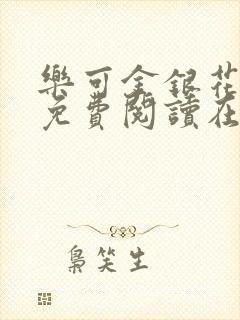 樂可金銀花
免費閱讀在
梟笑生